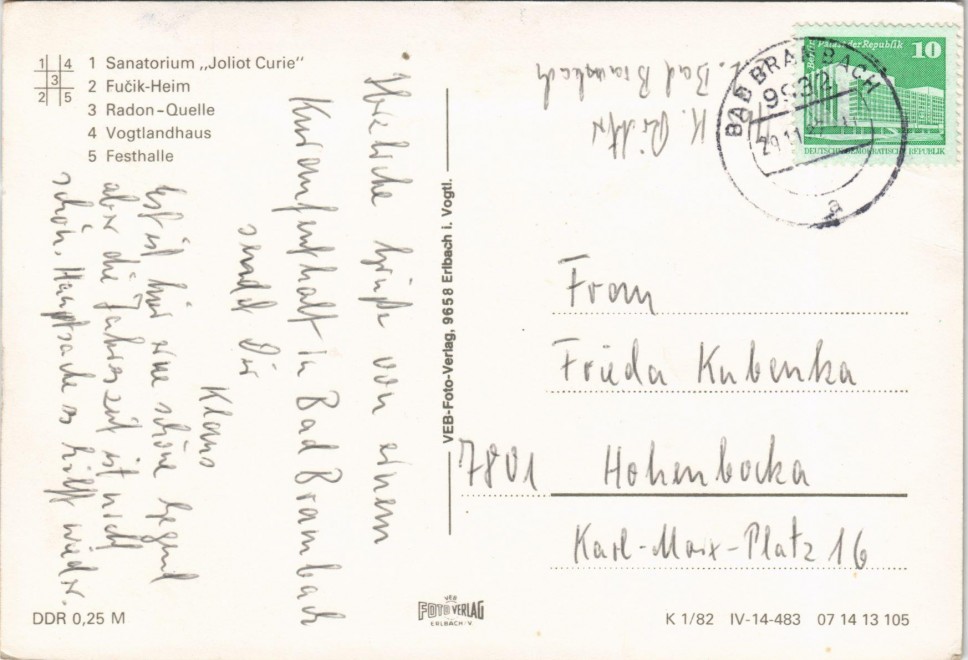 1 4
3
2 5
1 Sanatorium „Joliot Curie"
2 Fučik-Heim
3 Radon-Quelle
4 Vogtlandhaus
5 Festhalle
Herzliche Grüße von einem
Kuraufenthalt in Bad Brambach
sendet Dir
Klaus
Es ist hier eine schöne Gegend
aber die Jahreszeit ist nicht
schön. Hauptsache es hilft wieder.
VEB-Foto-Verlag, 9658 Erlbach i. Vogtl.
K.
Bad Brambach
BAD BRAMBACH
9932
29.11
a
Palast der Republik 10
DEUTSCHE DEMOKRATISCHE REPUBLIK
Frau
Frieda Kubenka
7801 Hohenbocka
Karl-Marx-Platz 16
DDR 0,25 M
VEB
FOTO VERLAG
ERLBACH/V.
K 1/82 IV-14-483 07 14 13 105